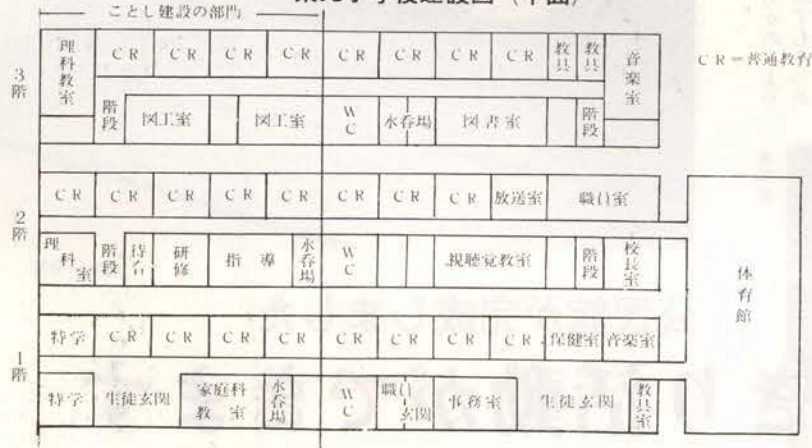 ことし建設の部門
CR=普通教育
3階
理科教室 CR CR CR CR CR CR CR CR 教具 教具 音楽室
階段 図工室 図工室 WC 水呑場 図書室 階段
2階
CR CR CR CR CR CR CR CR 放送室 職員室
理科室 階段 待合 研修 指導 水呑場 WC 視聴覚教室 階段 校長室
体育館
1階
特学 CR CR CR CR CR CR CR CR 保健室 音楽室
特学 生徒玄関 家庭科教室 水呑場 WC 職員玄関 事務室 生徒玄関 教具室